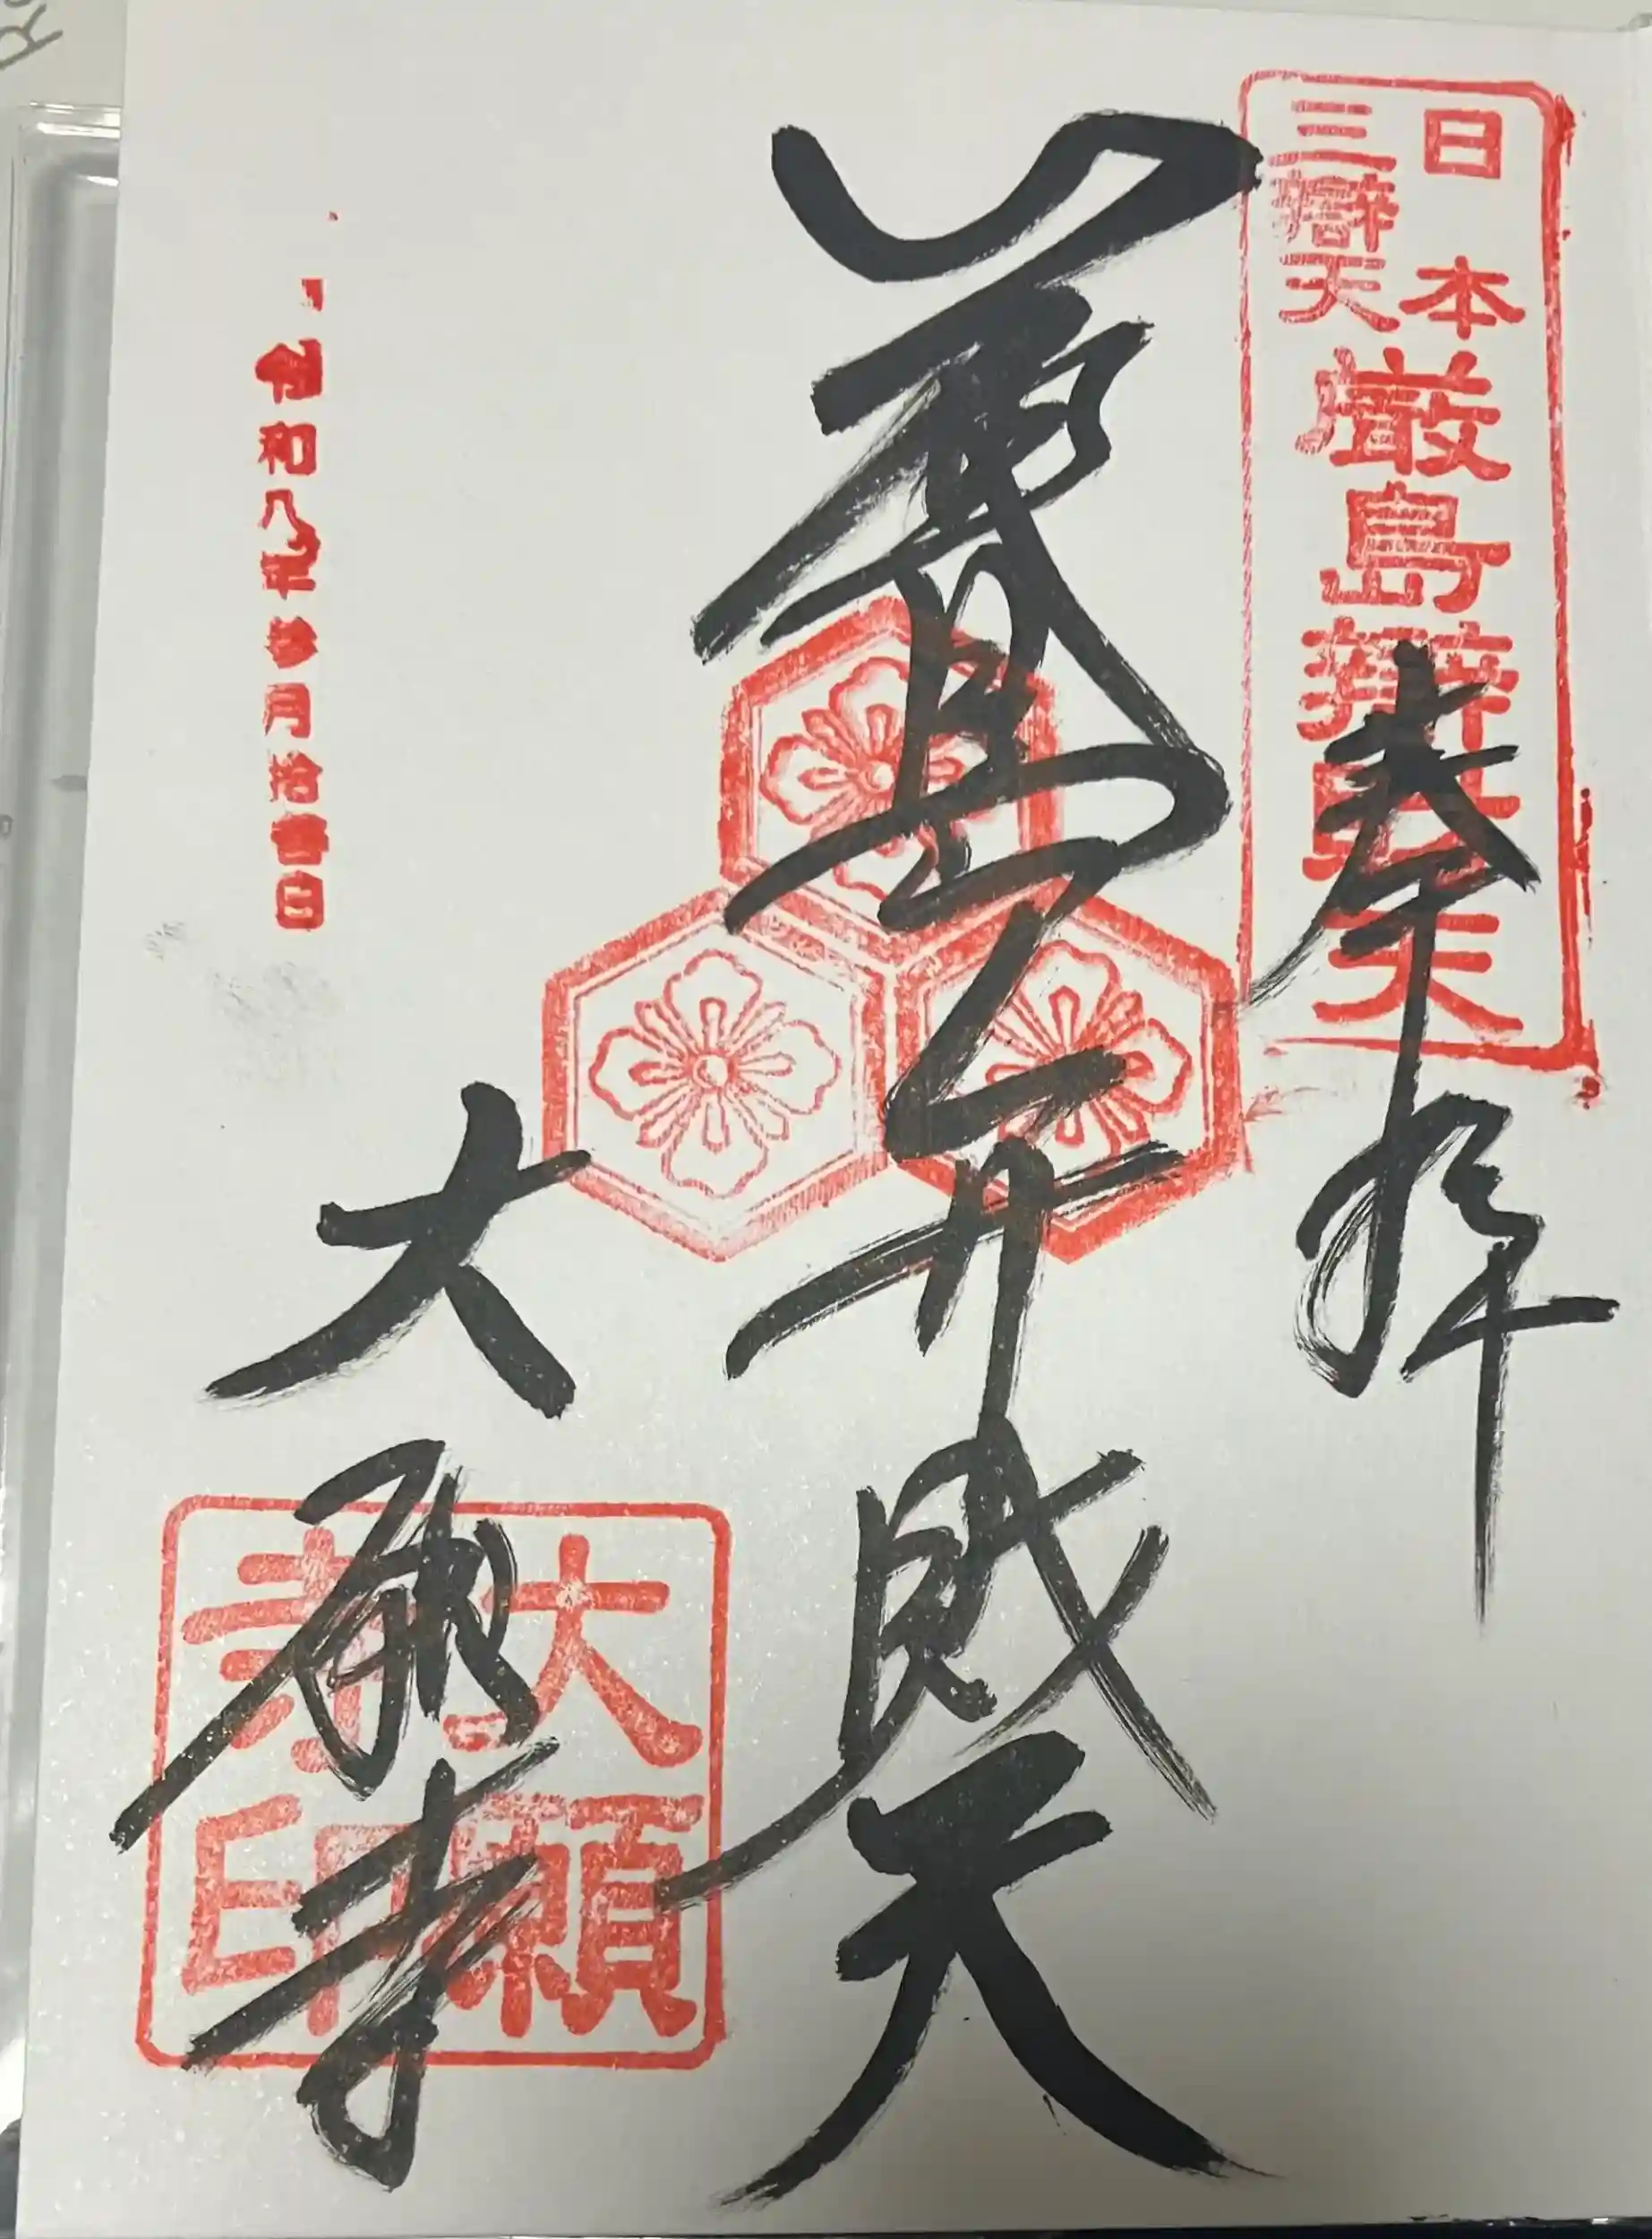 日本
三辨天
厳島辨財天
奉拝
厳島弁財天
令和八年参月拾壹日
大願寺
大願
寺印